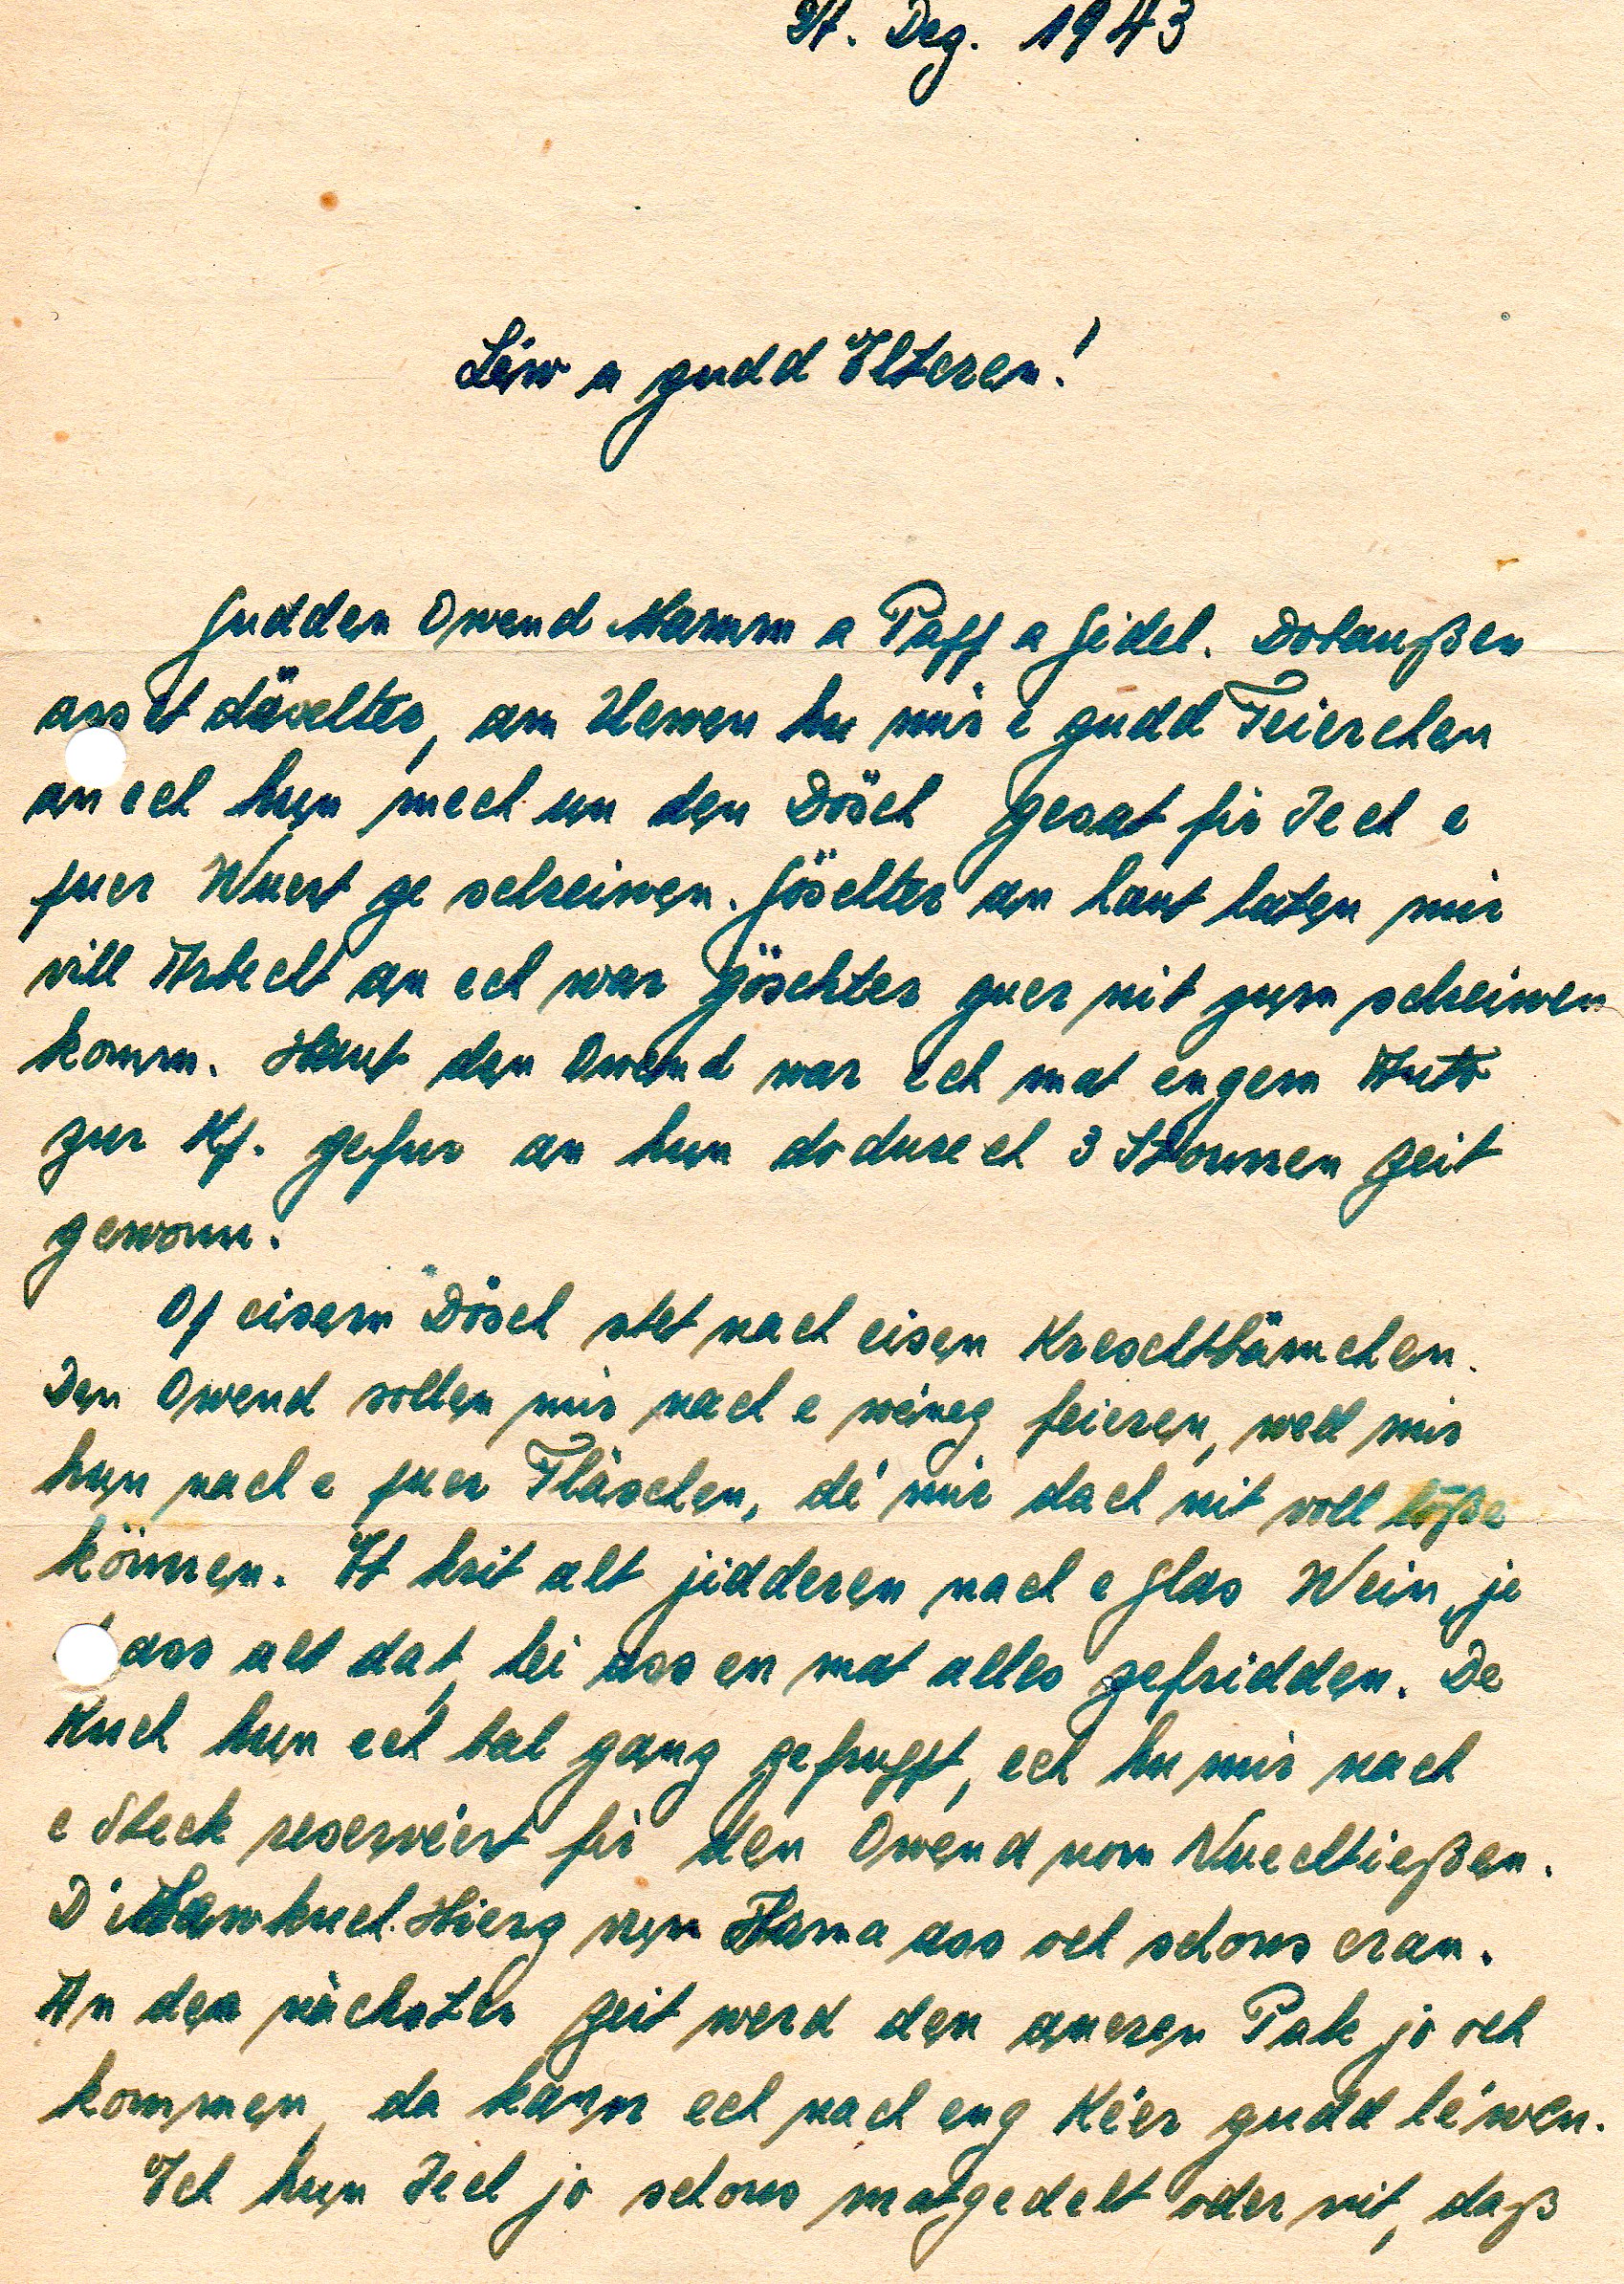 Dez. 1943
Léiw a gudd Elteren!
Gudden Owend Mamm a Papp a Gidel. Dobaußen
ass et däischter, am Uewen hu mir e gudd Feierchen
an ech hun mech un den Dösch gesat fir Iech e
puer Wuert ze schreiwen. Göschter an haut haten mir
vill Arbecht an ech war göschter guer nit zum schreiwen
komm. Haut den Owend war ech mat engem Auto
zur Kp. gefuer an hun dodurech 3 Stonnen Zeit
gewonn.
Op eisem Dösch stet nach eisen Kreschtbämchen.
Den Owend wollen mir nach e wéineg feieren, well mir
hun nach e puer Fläschen, dé mir dach nit voll loße
können. Et krit alt jidderen nach e Glas Wein, je
ass alt dat, hei ass en mat alles zefridden. De
Kuch hun ech bal ganz gefrupft, ech hu mir nach
e Steck reservéert fir den Owend nom Nuechtießen.
D' Hierz vun Mama ass och schons eran.
An der nächster Zeit werd den aneren Pak jo och
kommen, da kann ech nach eng Kéer gudd léwen.
Ech hun Iech jo schons matgedelt oder nit, daß